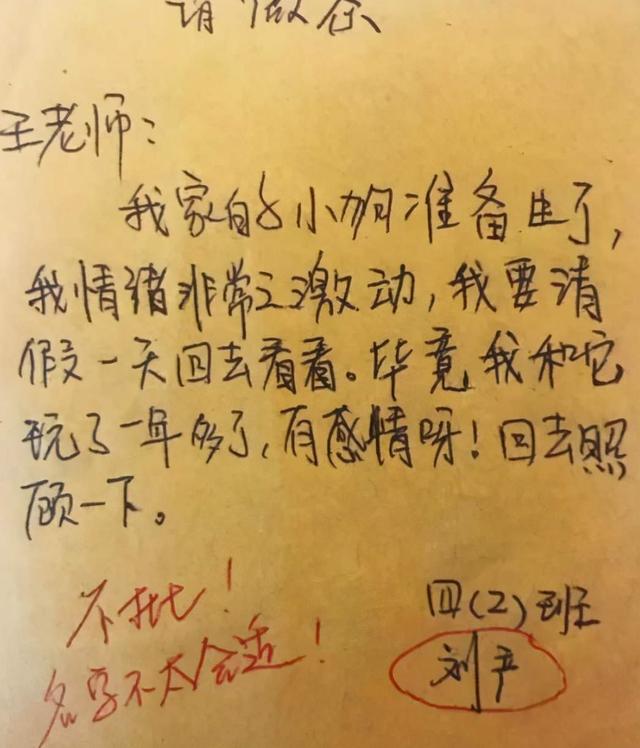 请假条
王老师：
我家的小狗准备生了，
我情绪非常之激动，我要请
假一天回去看看。毕竟，我和它
玩了一年多了，有感情呀！回去照
顾一下。
不批！
名字不太合适！
四（2）班
刘产